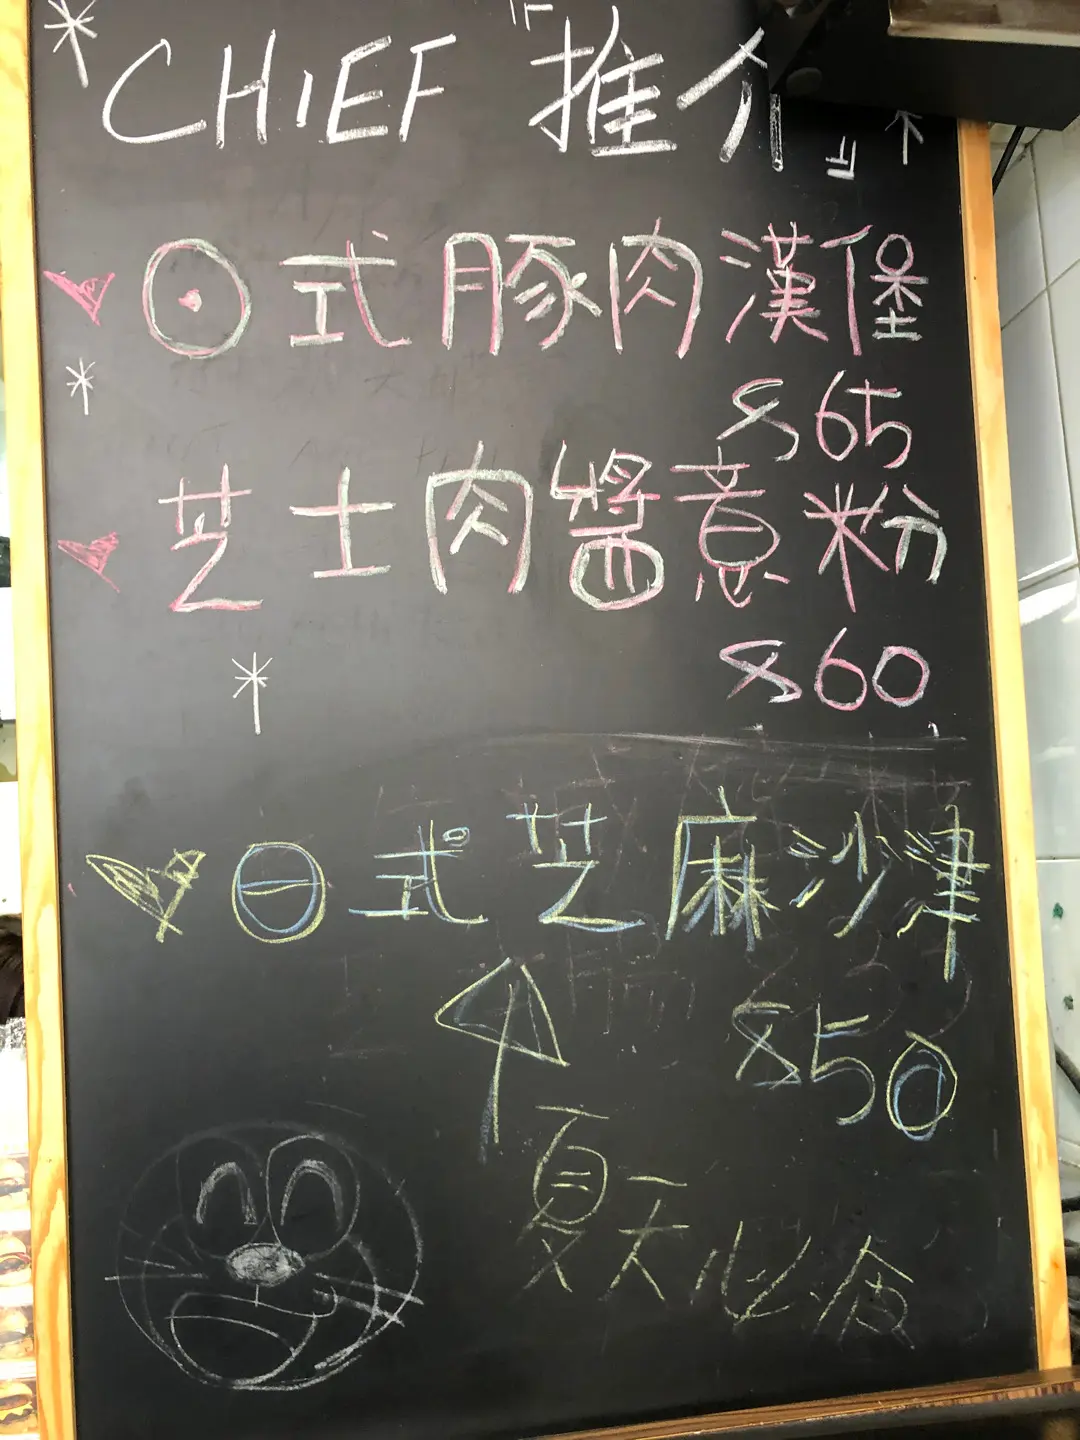 CHIEF『推介』
日式豚肉漢堡
$65
芝士肉醬意粉
$60
日式芝麻沙津
$50
夏天必食